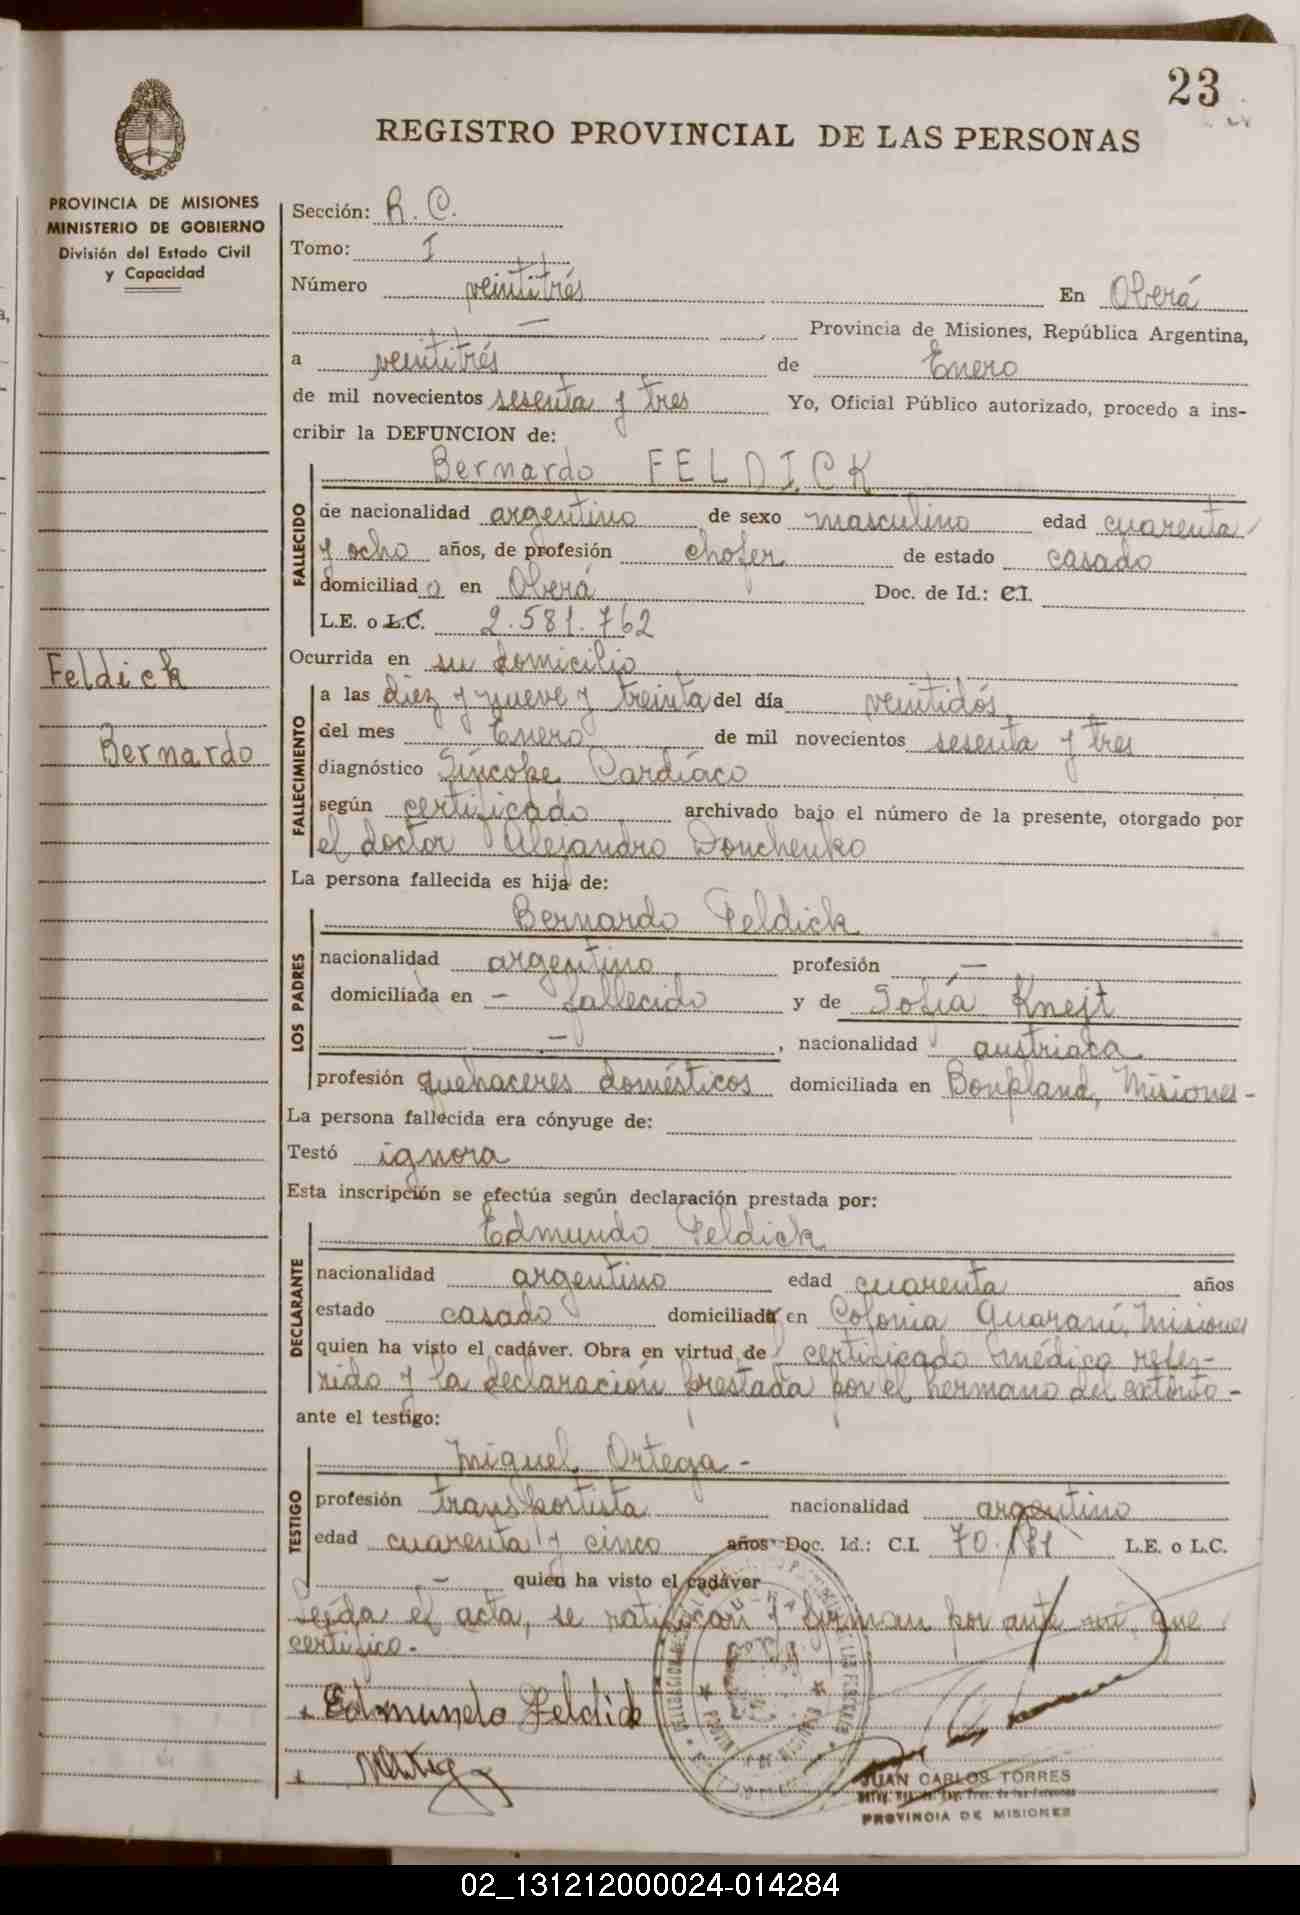 23
REGISTRO PROVINCIAL DE LAS PERSONAS
PROVINCIA DE MISIONES
MINISTERIO DE GOBIERNO
División del Estado Civil
y Capacidad
Sección: R. C.
Tomo: I
Número veintitrés En Oberá
— Provincia de Misiones, República Argentina,
a veintitrés de Enero
de mil novecientos sesenta y tres Yo, Oficial Público autorizado, procedo a ins-
cribir la DEFUNCION de:
Bernardo FELDICK
FALLECIDO
de nacionalidad argentino de sexo masculino edad cuarenta
y ocho años, de profesión chofer de estado casado
domiciliado en Oberá Doc. de Id.: C.I.
L.E. o L.C. 2.581.762
Feldick
Bernardo
Ocurrida en su domicilio
FALLECIMIENTO
a las diez y nueve y treinta del día veintidós
del mes Enero de mil novecientos sesenta y tres
diagnóstico Síncope Cardíaco
según certificado archivado bajo el número de la presente, otorgado por
el doctor Alejandro Donchenko
La persona fallecida es hija de:
LOS PADRES
Bernardo Feldick
nacionalidad argentino profesión —
domiciliada en - fallecido y de Sofía Knejt
— , nacionalidad austriaca
profesión quehaceres domésticos domiciliada en Bonpland, Misiones-
La persona fallecida era cónyuge de:
Testó ignora
Esta inscripción se efectúa según declaración prestada por:
DECLARANTE
Edmundo Feldick
nacionalidad argentino edad cuarenta años
estado casado domiciliada en Colonia Guaraní, Misiones
quien ha visto el cadáver. Obra en virtud de certificado médico refe-
rido y la declaración prestada por el hermano del extinto-
ante el testigo:
TESTIGO
Miguel Ortega-
profesión transportista nacionalidad argentino
edad cuarenta y cinco años Doc. Id.: C.I. L.E. o L.C.
— quien ha visto el cadáver
Leída el acta, se ratifican y firman por ante mí, que
certifico.-
Edmundo Feldick
JUAN CARLOS TORRES
PROVINCIA DE MISIONES
02_131212000024-014284